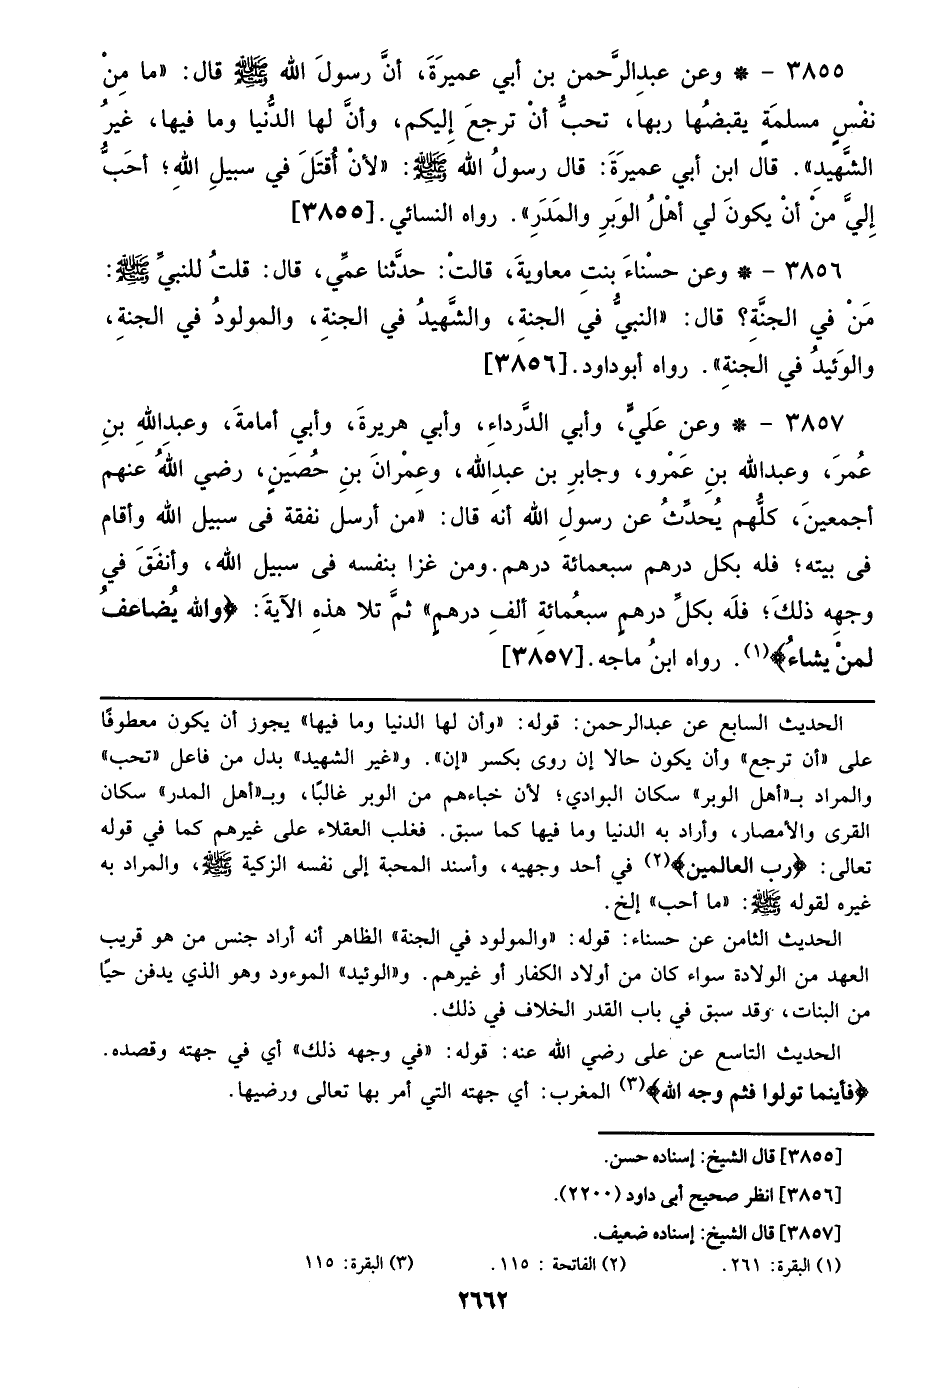 ٣٨٥٥ – * وعن عبدِالرَّحمن بن أبي عميرَةَ، أنَّ رسولَ الله ﷺ قال: «ما مِنْ
نفْسٍ مسلمَةٍ يقبضُها ربها، تحبُّ أنْ ترجعَ إليكم، وأنَّ لها الدُّنيا وما فيها، غيرُ
الشَّهيدِ». قال ابن أبي عميرَةَ: قال رسولُ الله ﷺ: «لأنْ أُقتَلَ في سبيلِ اللهِ؛ أحَبُّ
إليَّ منْ أنْ يكونَ لي أهْلُ الوَبَرِ والمَدَرِ». رواه النسائي.[٣٨٥٥]
٣٨٥٦ – * وعن حسْناءَ بنتِ معاويةَ، قالتْ: حدَّثنا عمِّي، قال: قلتُ للنبيِّ ﷺ:
مَنْ في الجنَّةِ؟ قال: «النبيُّ في الجنةِ، والشَّهيدُ في الجنةِ، والمولودُ في الجنةِ،
والوَئيدُ في الجنةِ». رواه أبوداود.[٣٨٥٦]
٣٨٥٧ – * وعن عَليٍّ، وأبي الدَّرداءِ، وأبي هريرةَ، وأبي أمامةَ، وعبدِاللهِ بنِ
عُمرَ، وعبدالله بنِ عَمْرو، وجابرِ بن عبدِالله، وعِمْرانَ بنِ حُصَينٍ، رضي اللهُ عنهم
أجمعينَ، كلُّهم يُحدِّثُ عن رسولِ الله أنه قال: «من أرسل نفقة فى سبيل الله وأقام
فى بيته؛ فله بكل درهم سبعمائة درهم.ومن غزا بنفسه فى سبيل الله، وأنفَقَ في
وجهِه ذلكَ؛ فلَه بكلِّ درهمٍ سبعُمائةِ ألفِ درهمٍ» ثمَّ تلا هذهِ الآيةَ: ﴿والله يُضاعفُ
لمنْ يشاءُ﴾(١). رواه ابنُ ماجه.[٣٨٥٧]
الحديث السابع عن عبدالرحمن: قوله: «وأن لها الدنيا وما فيها» يجوز أن يكون معطوفًا
على «أن ترجع» وأن يكون حالا إن روى بكسر «إن». و«غير الشهيد» بدل من فاعل «تحب»
والمراد بـ«أهل الوبر» سكان البوادي؛ لأن خباءهم من الوبر غالبًا، وبـ«أهل المدر» سكان
القرى والأمصار، وأراد به الدنيا وما فيها كما سبق. فغلب العقلاء على غيرهم كما في قوله
تعالى: ﴿رب العالمين﴾(٢) في أحد وجهيه، وأسند المحبة إلى نفسه الزكية ﷺ، والمراد به
غيره لقوله ﷺ: «ما أحب» إلخ.
الحديث الثامن عن حسناء: قوله: «والمولود في الجنة» الظاهر أنه أراد جنس من هو قريب
العهد من الولادة سواء كان من أولاد الكفار أو غيرهم. و«الوئيد» الموءود وهو الذي يدفن حيًا
من البنات، وقد سبق في باب القدر الخلاف في ذلك.
الحديث التاسع عن على رضي الله عنه: قوله: «في وجهه ذلك» أي في جهته وقصده.
﴿فأينما تولوا فثم وجه الله﴾(٣) المغرب: أي جهته التي أمر بها تعالى ورضيها.
[٣٨٥٥] قال الشيخ: إسناده حسن.
[٣٨٥٦] انظر صحيح أبى داود (٢٢٠٠).
[٣٨٥٧] قال الشيخ: إسناده ضعيف.
(١) البقرة: ٢٦١. (٢) الفاتحة : ١١٥. (٣) البقرة: ١١٥
٢٦٦٢